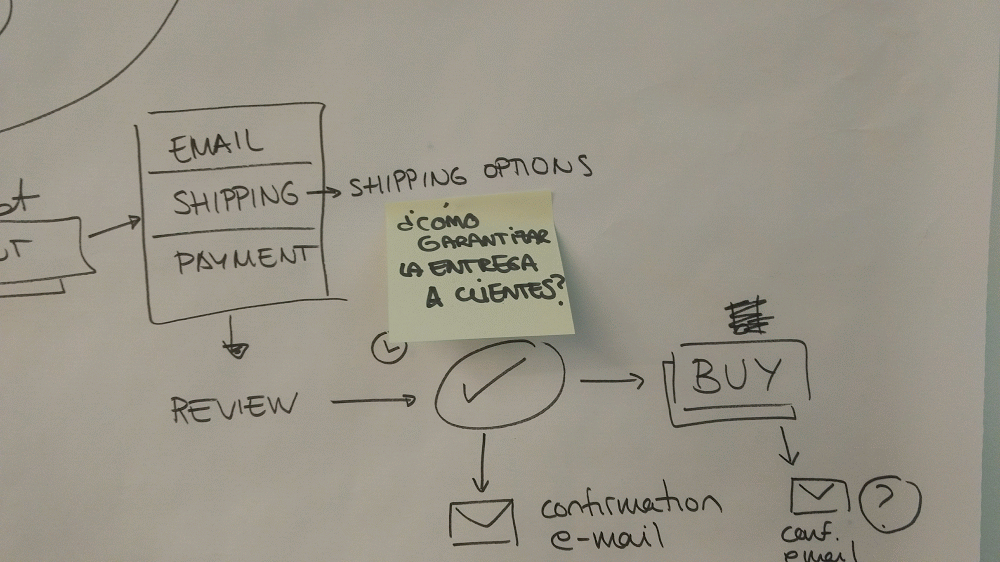 EMAIL
SHIPPING
SHIPPING OPTIONS
PAYMENT
¿CÓMO
GARANTIZAR
LA ENTREGA
A CLIENTES?
REVIEW
BUY
confirmation
e-mail
?
conf.
email